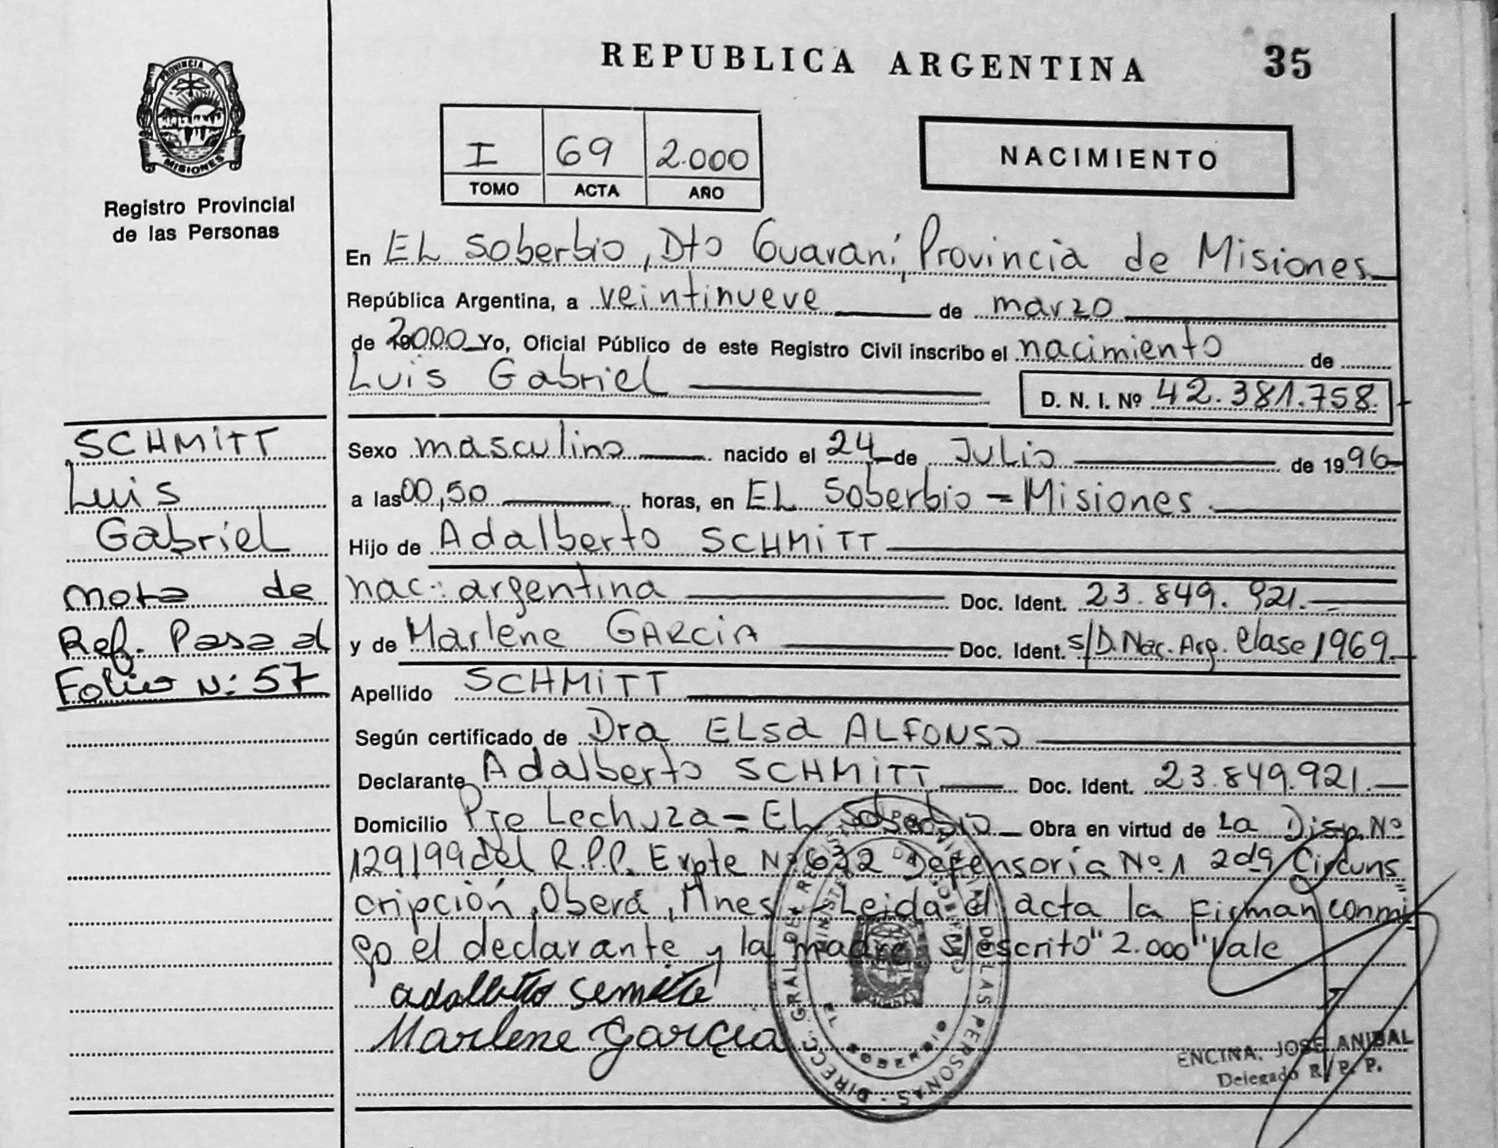 REPUBLICA ARGENTINA 35
PROVINCIA DE MISIONES
Registro Provincial
de las Personas
I 69 2.000
TOMO ACTA AÑO
NACIMIENTO
En EL Soberbio, Dto Guaraní, Provincia de Misiones
República Argentina, a veintinueve de marzo
de 2000 Yo, Oficial Público de este Registro Civil inscribo el nacimiento de
Luis Gabriel
D. N. I. Nº 42.381.758.
SCHMITT
Luis
Gabriel
Nota de
Ref. Pasa al
Folio N: 57
Sexo masculino nacido el 24 de Julio de 1996
a las 00,50 horas, en EL Soberbio - Misiones
Hijo de Adalberto SCHMITT
nac: argentina Doc. Ident. 23.849.921.
y de Marlene GARCIA Doc. Ident. s/D. Nac. Arg. Clase 1969.
Apellido SCHMITT
Según certificado de Dra ELSA ALFONSO
Declarante Adalberto SCHMITT Doc. Ident. 23.849.921.
Domicilio Pje Lechuza - EL Soberbio Obra en virtud de La Disp. Nº
129/99 del R.P.P. Expte Nº 632 Defensoria Nº 1 2da Circuns
cripción, Oberá, Mnes.- Leida el acta la firman conmi
go el declarante y la madre S/escrito "2.000" Vale
Marlene Garcia
DIRECC. GRAL DEL REGISTRO PROVINCIAL DE LAS PERSONAS
MINISTERIO DE GOBIERNO
EL SOBERBIO
ENCINA, JOSE ANIBAL
Delegado R. P. P.